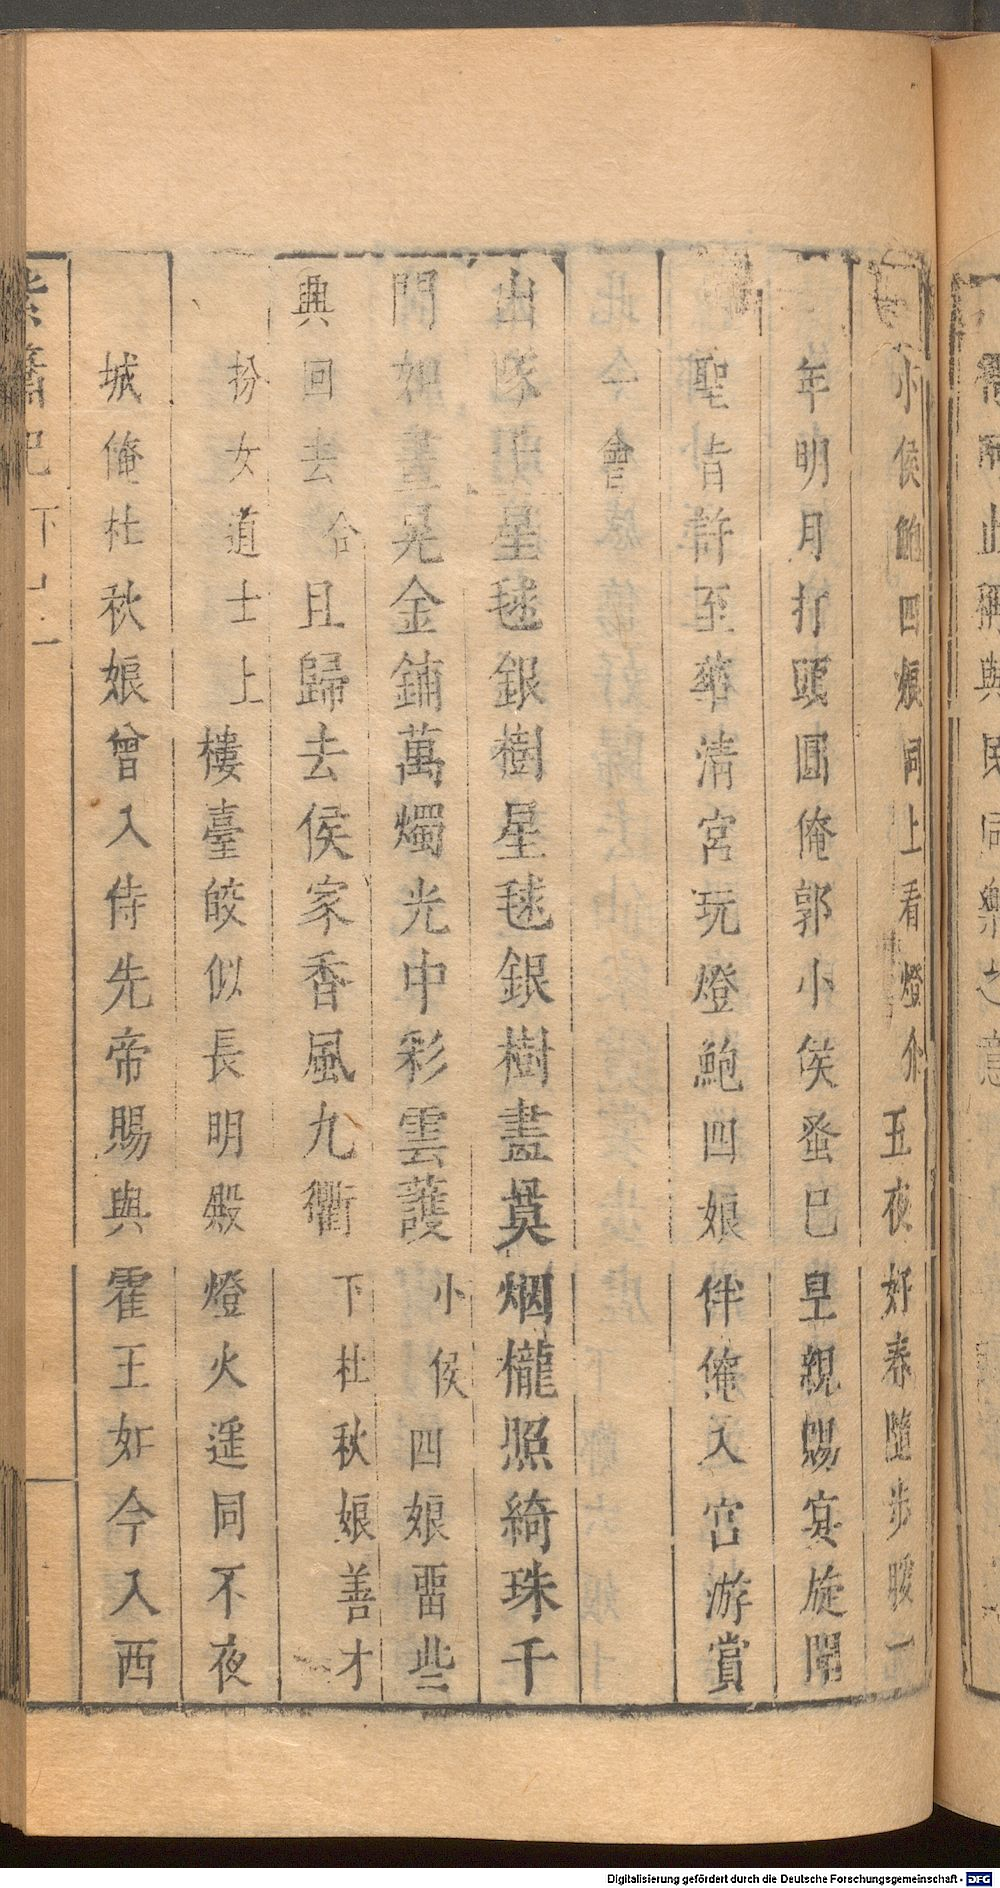 小侯鮑四娘同上看燈介五夜好春隨步暖一
年明月打頭圓俺郭小侯蚤巳皇親賜宴旋開
聖旨許至華清宮玩燈鮑四娘伴俺入宮游賞
此今會
出隊子星毬銀樹星毬銀樹畫莫烟櫳照綺珠千
門如晝晃金鋪萬燭光中彩雲護小侯四娘畱些
興回去合且歸去侯家香風九衢下杜秋娘善才
扮女道士上樓臺皎似長明殿燈火遥同不夜
城俺杜秋娘曾入侍先帝賜與霍王如今入西
紫簫記下
Digitalisierung gefördert durch die Deutsche Forschungsgemeinschaft - DFG